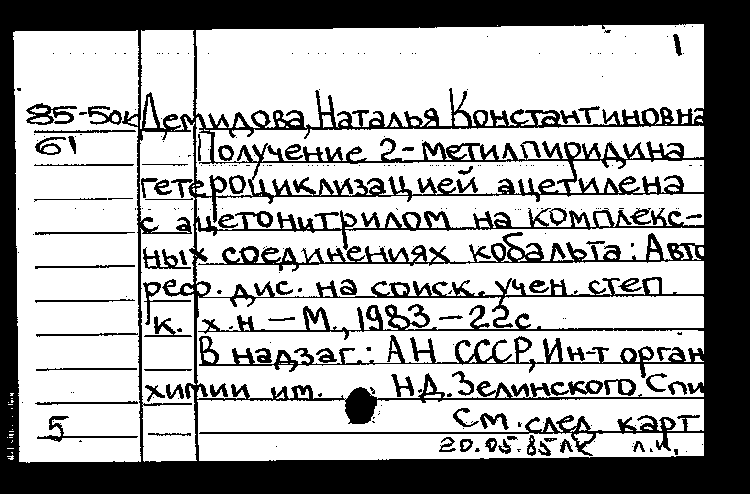 1
85-50к Демидова, Наталья Константиновна
61 Получение 2-метилпиридина
гетероциклизацией ацетилена
с ацетонитрилом на комплекс-
ных соединениях кобальта: Авто
реф. дис. на соиск. учен. степ.
к. х.н. — М., 1983. — 22с.
В надзаг.: АН СССР, Ин-т орган
химии им. Н.Д. Зелинского. Спи
5 См. след. карт
20.05.85 ЛК л.н.